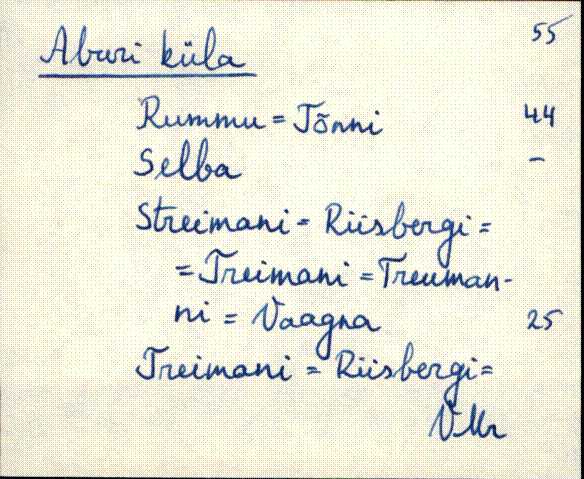 55
Aburi küla
Rummu = Tõnni 44
Selba -
Streimani = Riisbergi =
= Treimani = Treuman-
ni = Vaagna 25
Treimani = Riisbergi =
VMr